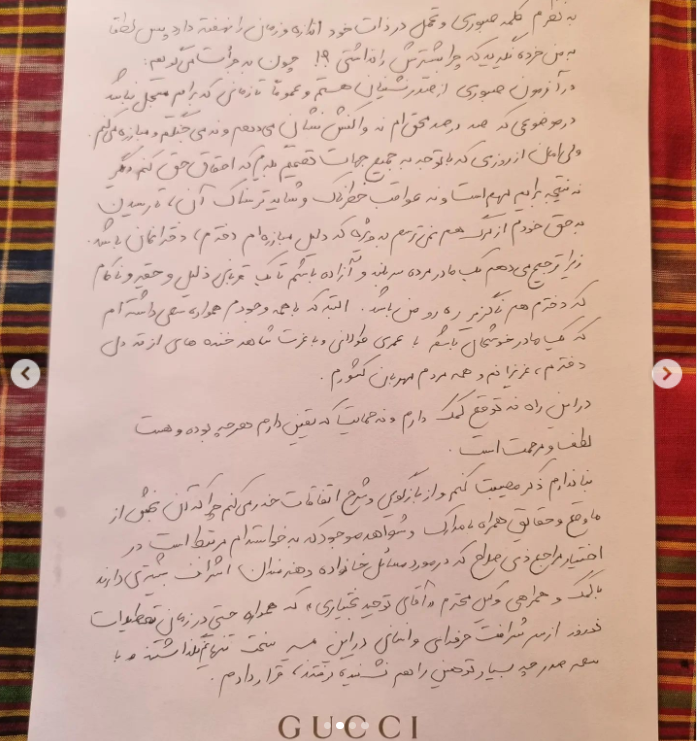 به نظرم کلمه صبوری و تحمل در ذات خود اندازه و زمانی را نهفته دارد پس لطفا
به من خرده نگیرید که چرا بیشترش را نداشتی ؟! چون به جرأت می‌گویم:
در آزمون صبوری از صدرنشینان هستم و عموماً تا زمانی که برایم متحمل باشد
در موضوعی که صد در صد محق‌ام نه واکنش نشان می‌دهم و نه می‌جنگم و مبارزه می‌کنم.
ولی امان از روزی که با توجه به جمیع جهات تصمیم بگیرم که احقاق حق کنم دیگر
نه نتیجه برایم مهم است و نه عواقب خطرناک و شاید ترسناک آن، تا رسیدن
به حق خودم از مرگ هم نمی‌ترسم به ویژه که دلیل مبارزه‌ام دخترم، دخترانمان باشد.
زیرا ترجیح می‌دهم یک مادر مرده سربلند و آزاده باشم تا یک قربانی ذلیل و حقیر و ناکام
که دخترم هم ناگزیر ره‌رو من باشد. البته که با همه وجودم همواره سعی داشته‌ام
که یک مادر خوشحال باشم با عمری طولانی و با عزت شاهد خنده های از ته دل
دخترم، عزیزانم و همه مردم مهربان کشورم.
در این راه نه توقع کمک دارم و نه حمایت که یقین دارم هرچه بوده و هست
لطف و مرحمت است.
بنا ندارم ذکر مصیبت کنم و از بازگویی و شرح اتفاقات حذر می‌کنم چرا که آن بخش از
ماوقع و حقایق همراه با مدارک و شواهد موجود که به خواسته‌ام مرتبط است در
اختیار مراجع ذی صلاح که در مورد مسائل خانواده و هنرمندان اشراف بیشتری دارند
با کمک و همراهی وکیل محترم «آقای توحید بختیاری» که همواره حتی در زمان تعطیلات
نوروز از سر شرافت حرفه‌ای و انسانی در این مسیر سخت تنهایم نگذاشتند و با
سعه صدر چه بسیار توهینی را هم نشنیده گرفتند، قرار دادم.
GUCCI